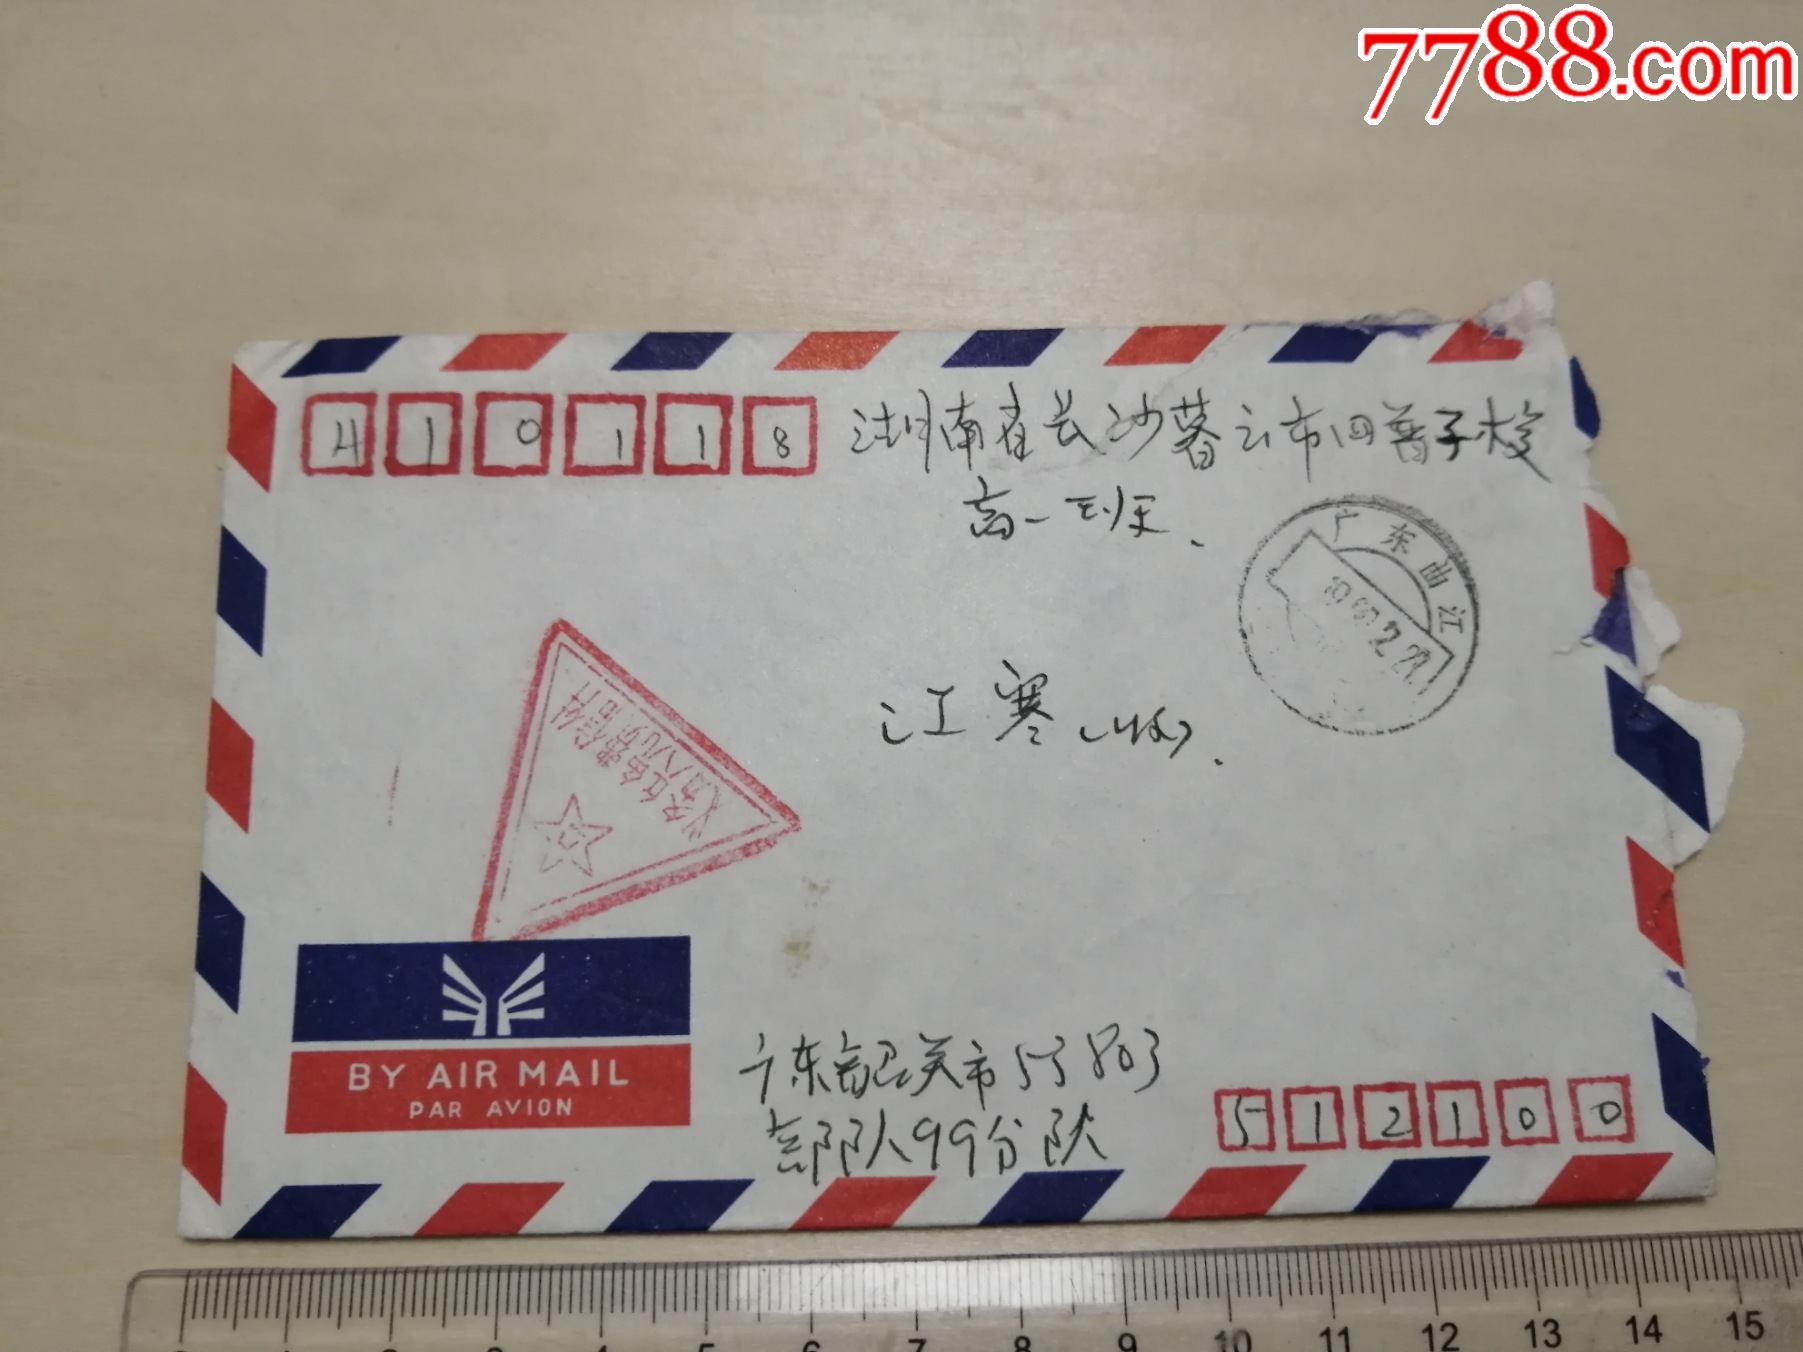 7788.com
410118
湖南省长沙暮云市四普子校
高一班.
江寒(收).
广东曲江
义务兵免费信件
BY AIR MAIL
PAR AVION
广东韶关市53803
部队99分队
512100
1 2 3 4 5 6 7 8 9 10 11 12 13 14 15